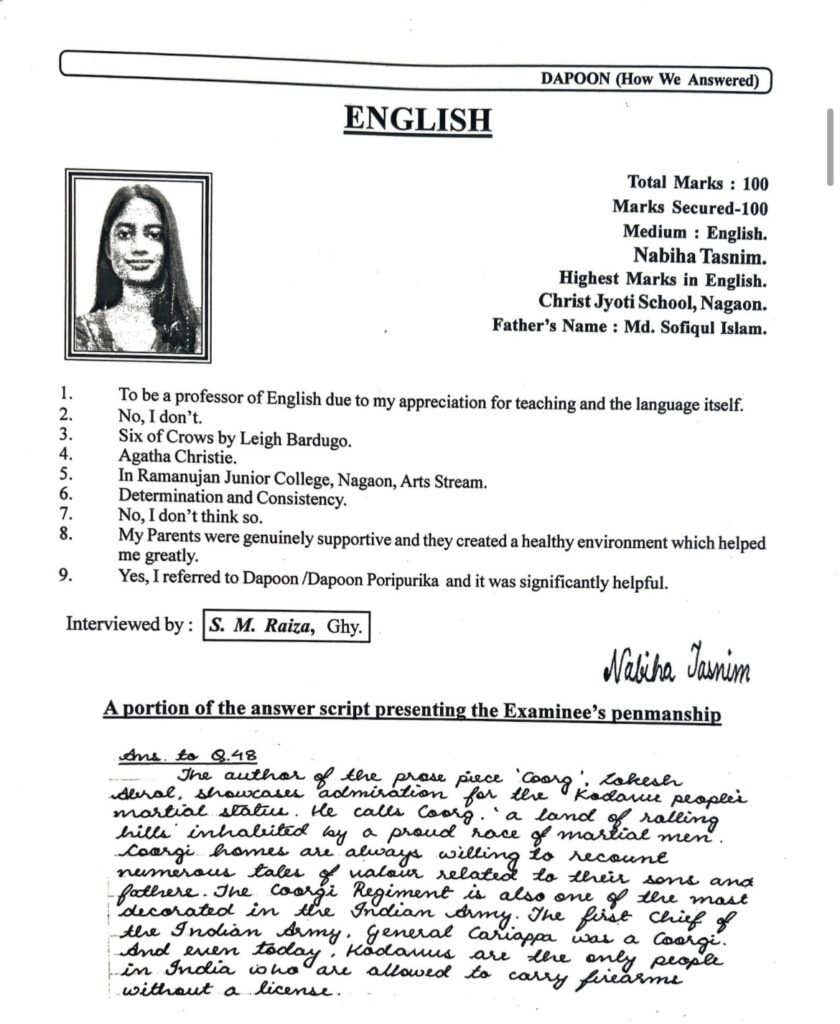 DAPOON (How We Answered)
ENGLISH
Total Marks : 100
Marks Secured-100
Medium : English.
Nabiha Tasnim.
Highest Marks in English.
Christ Jyoti School, Nagaon.
Father's Name : Md. Sofiqul Islam.
1. To be a professor of English due to my appreciation for teaching and the language itself.
2. No, I don't.
3. Six of Crows by Leigh Bardugo.
4. Agatha Christie.
5. In Ramanujan Junior College, Nagaon, Arts Stream.
6. Determination and Consistency.
7. No, I don't think so.
8. My Parents were genuinely supportive and they created a healthy environment which helped
me greatly.
9. Yes, I referred to Dapoon /Dapoon Poripurika and it was significantly helpful.
Interviewed by : S. M. Raiza, Ghy.
Nabiha Tasnim
A portion of the answer script presenting the Examinee's penmanship
Ans. to Q.48
The author of the prose piece 'Coorg', Lokesh
Abrol, showcases admiration for the Kodavu people's
martial status. He calls Coorg, 'a land of rolling
hills' inhabited by a proud race of martial men.
Coorgi homes are always willing to recount
numerous tales of valour related to their sons and
fathers. The Coorgi Regiment is also one of the most
decorated in the Indian Army. The first Chief of
the Indian Army, General Cariappa was a Coorgi.
And even today, Kodavus are the only people
in India who are allowed to carry firearms
without a license.